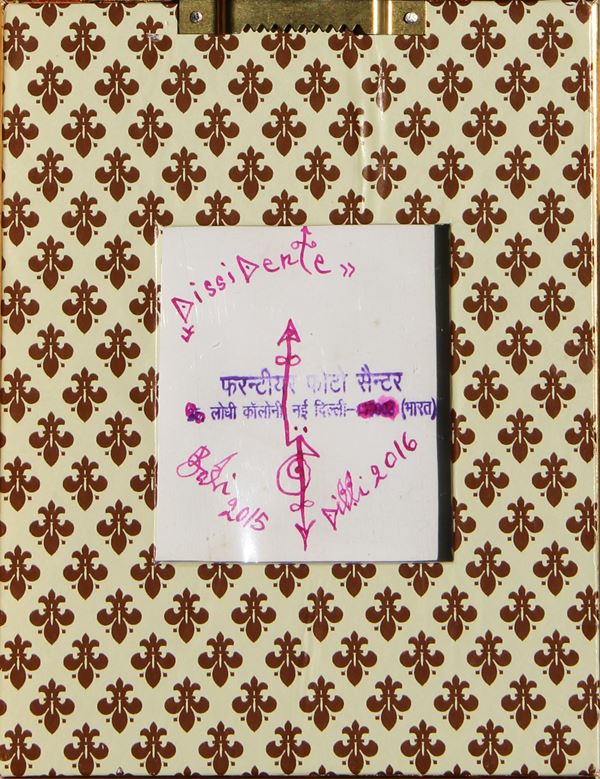 «Dissidente»
फरन्टीयर फोटो सैन्टर
लोधी कॉलोनी नई दिल्ली- (भारत)
2015
Dilli 2016